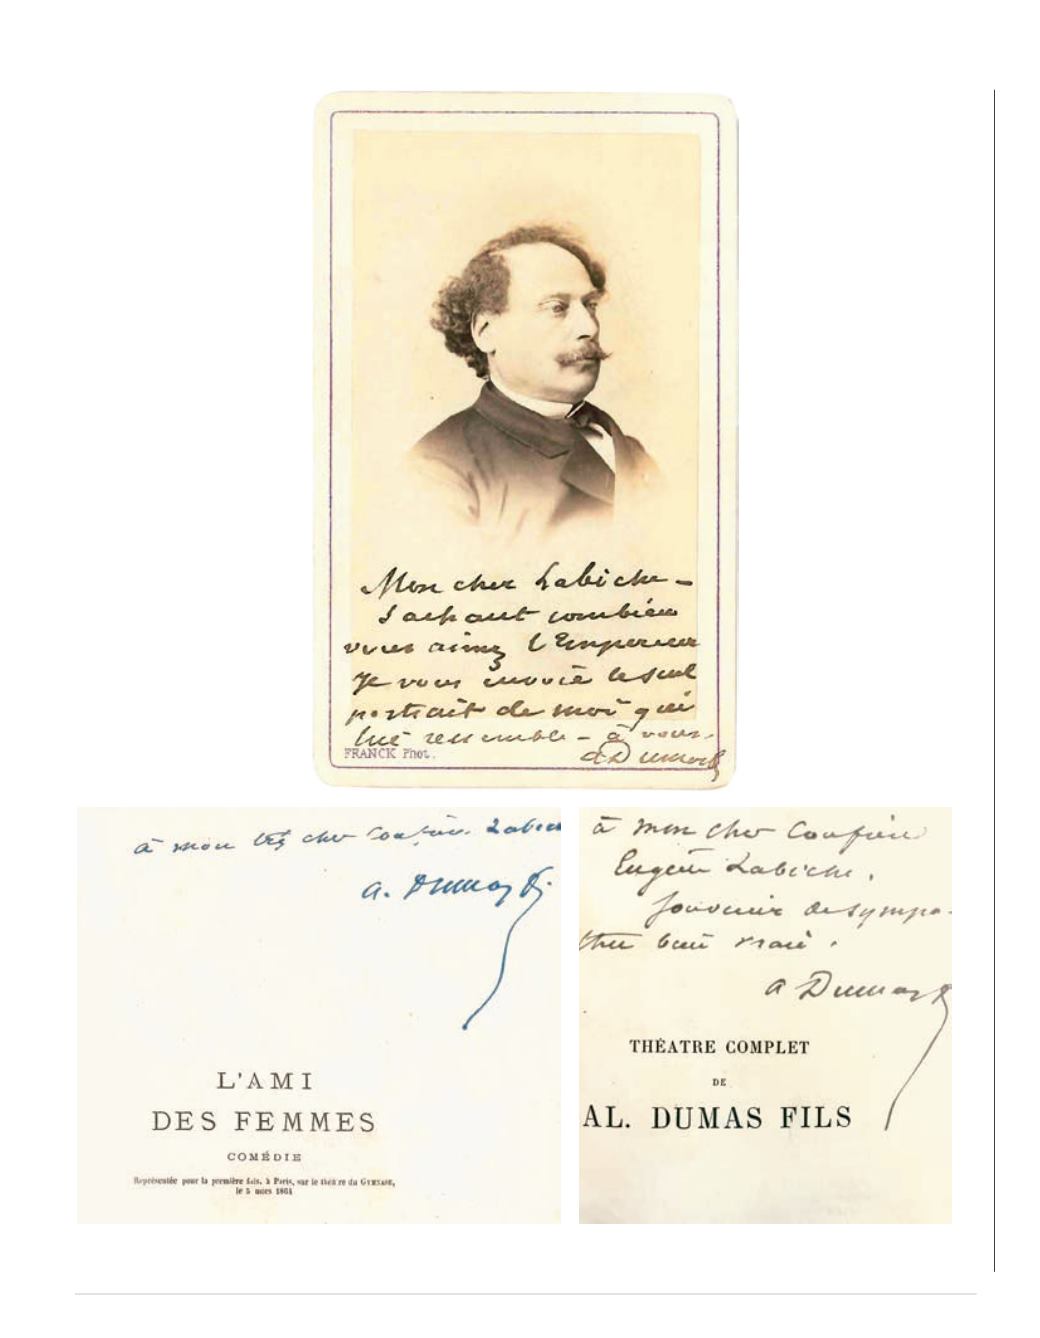 Mon cher Labiche –
Sachant combien
vous aimez l'Empereur
Je vous envoie le seul
portrait de moi qui
lui ressemble – à vous.
FRANCK Phot.
A Dumas f
à mon très cher Confrère Labiche
A. Dumas f.
L'AMI
DES FEMMES
COMÉDIE
Représentée pour la première fois, à Paris, sur le théâtre du GYMNASE,
le 5 mars 1864
à mon cher Confrère
Eugène Labiche.
Souvenir de sympa-
thie bien vraie.
A Dumas f
THÉATRE COMPLET
DE
AL. DUMAS FILS